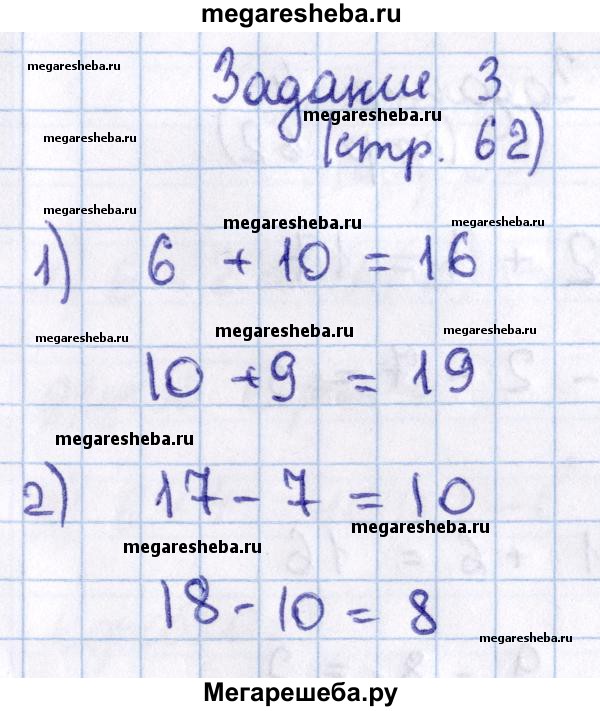 megaresheba.ru
megaresheba.ru
Задание 3
megaresheba.ru
megaresheba.ru
(стр. 62)
megaresheba.ru
megaresheba.ru
megaresheba.ru
1) 6 + 10 = 16
megaresheba.ru
megaresheba.ru
megaresheba.ru
10 + 9 = 19
megaresheba.ru
2) 17 - 7 = 10
megaresheba.ru
megaresheba.ru
18 - 10 = 8
megaresheba.ru
Мегарешеба.ру